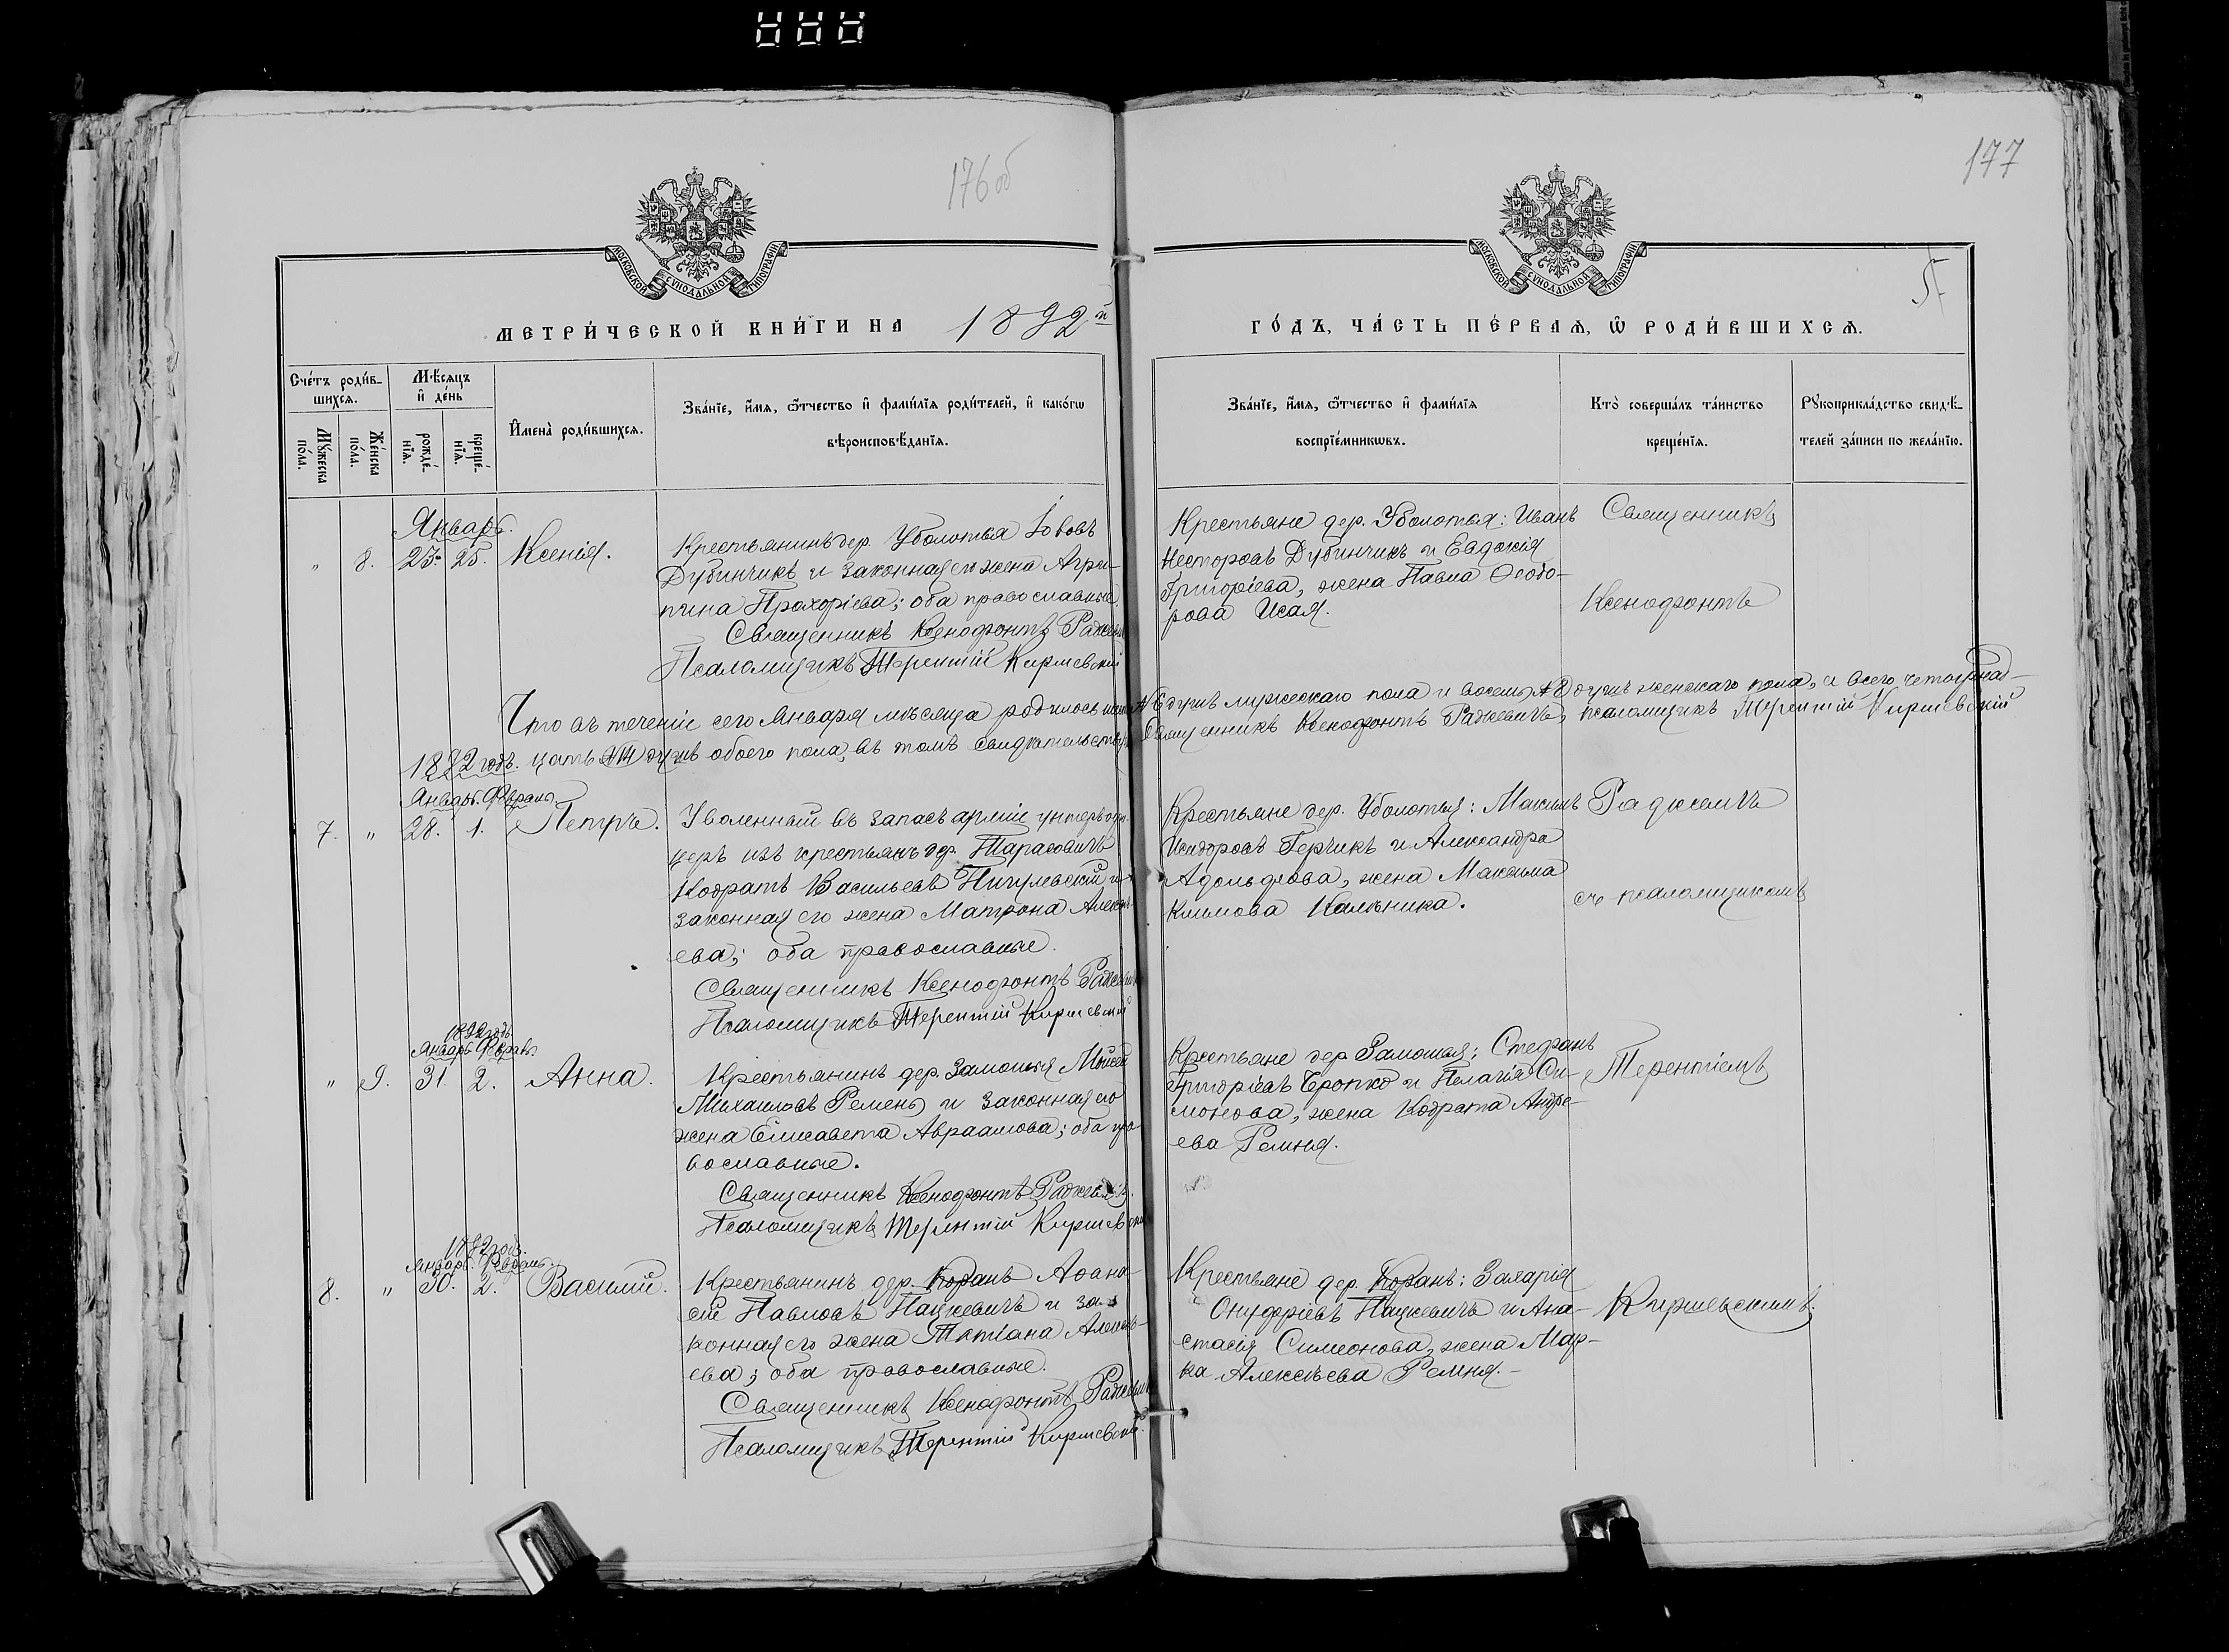 176 об
177
5
МОСКОВСКОЙ СѴНОДАЛЬНОЙ ТИПОГРАФІИ
МОСКОВСКОЙ СѴНОДАЛЬНОЙ ТИПОГРАФІИ
МЕТРИ́ЧЕСКОЙ КНИ́ГИ НА 1892й ГО́ДЪ, ЧА́СТЬ ПЕ́РВАѦ, Ѿ РОДИ́ВШИХСѦ.
Сче́тъ роди́в-
шихсѧ.
Мѣ́сѧцъ
и҆ де́нь
Мꙋ́жеска по́ла.
Же́нска по́ла.
рожде́-
нїѧ.
креще́-
нїѧ.
И҆мена̀ роди́вшихсѧ.
Зва́нїе, и҆́мѧ, ѻ҆́тчество и҆ фами́лїѧ роди́телей, и҆ како́гѡ
вѣроисповѣ́данїѧ.
Зва́нїе, и҆́мѧ, ѻ҆́тчество и҆ фами́лїѧ
воспрїе́мникѡвъ.
Кто̀ соверша́лъ та́инство
креще́нїѧ.
Рꙋкоприкла́дство свидѣ́-
телей за́писи по жела́нїю.
Январь.
" 8. 23. 25. Ксенія.
Крестьянинъ дер. Уболотья Іовъ
Дубинчикъ и законная его жена Агри-
пина Прохоріева; оба православные.
Священникъ Ксенофонтъ Радкевичъ
Псаломщикъ Терентій Киршевскій
Крестьяне дер. Уболотья: Иванъ
Несторовъ Дубинчикъ и Евдокія
Григоріева, жена Павла Ѳеодо-
рова Исая.
Священникъ
Ксенофонтъ
Что въ теченіе сего Января мѣсяца родилось № 6 душъ мужескаго пола и восемь № 8 душъ женскаго пола, а всего четырнад-
цать № 14 душъ обоего пола, въ томъ свидѣтельствуемъ Священникъ Ксенофонтъ Радкевичъ, псаломщикъ Терентій Киршевскій
1892 годъ.
Январь. Февраль.
7. " 28. 1. Петръ.
Уволенный въ запасъ арміи унтеръ офи-
церъ изъ крестьянъ дер. Тарасовичъ
Кодратъ Васильевъ Пигулевскій и
законная его жена Матрона Алексѣ-
ева; оба православные.
Священникъ Ксенофонтъ Радкевичъ
Псаломщикъ Терентій Киршевскій
Крестьяне дер. Уболотья: Максимъ
Исидоровъ Герчикъ и Александра
Адольфова, жена Максима
Климова Калѣника.
Радкевичъ
съ псаломщикомъ
1892 годъ.
Январь Февраль.
" 9. 31. 2. Анна.
Крестьянинъ дер. Замошья Моисей
Михаиловъ Ремень и законная его
жена Елисавета Авраамова; оба пра-
вославные.
Священникъ Ксенофонтъ Радкевичъ.
Псаломщикъ Терентій Киршевскій
Крестьяне дер. Замошья: Стефанъ
Григоріевъ Бропко и Пелагія Си-
монова, жена Кодрата Андре-
ева Ремня.
Терентіемъ
1892 годъ.
Январь. Февраль.
8. " 30. 2. Василій.
Крестьянинъ дер. Корань Аѳана-
сій Павловъ Пацкевичъ и за-
конная его жена Татіана Алексѣ-
ева; оба православные.
Священникъ Ксенофонтъ Радкевичъ
Псаломщикъ Терентій Киршевскій.
Крестьяне дер. Корань: Захарія
Онуфріевъ Пацкевичъ и Ана-
стасія Симеонова, жена Мар-
ка Алексѣева Ремня.-
Киршевскимъ.